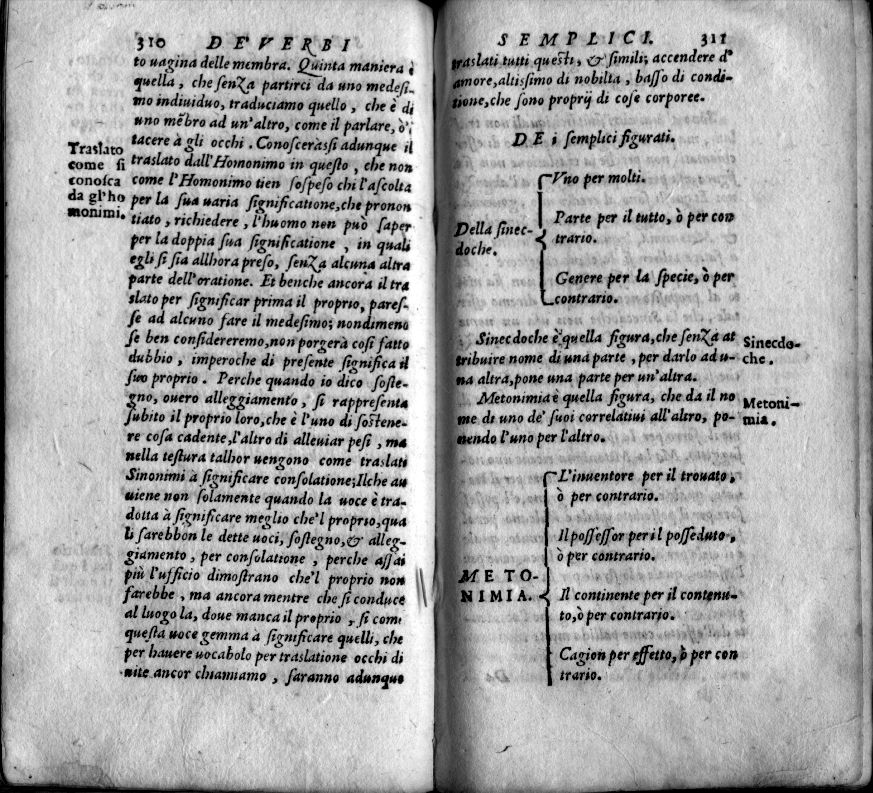 310 DE' VERBI
to uagina delle membra. Quinta maniera è
quella, che senza partirci da uno medesi-
mo indiuiduo, traduciamo quello, che è di
uno mẽbro ad un'altro, come il parlare, ò
tacere à gli occhi. Conosceràssi adunque il
traslato dall'Homonimo in questo, che non
come l'Homonimo tien sospeso chi l'ascolta
per la sua uaria significatione, che pronon
tiato, richiedere, l'huomo non può saper
per la doppia sua significatione, in quali
egli si sia allhora preso, senza alcuna altra
parte dell'oratione. Et benche ancora il tra
slato per significar prima il proprio, pares-
se ad alcuno fare il medesimo; nondimeno
se ben considereremo, non porgerà cosi fatto
dubbio, imperoche di presente significa il
suo proprio. Perche quando io dico soste-
gno, ouero alleggiamento, si rappresenta
subito il proprio loro, che è l'uno di sostene-
re cosa cadente, l'altro di alleuiar pesi, ma
nella testura talhor uengono come traslati
Sinonimi à significare consolatione; Ilche au
uiene non solamente quando la uoce è tra-
dotta à significare meglio che'l proprio, qua
li sarebbon le dette uoci, sostegno, & alleg-
giamento, per consolatione, perche assai
più l'ufficio dimostrano che'l proprio non
farebbe, ma ancora mentre che si conduce
al luogo la, doue manca il proprio, si come
questa uoce gemma à significare quelli, che
per hauere uocabolo per traslatione occhi di
uite ancor chiamiamo, saranno adunque
Traslato
come si
conosca
da gl'ho
monimi.
SEMPLICI. 311
traslati tutti questi, & simili; accendere d'
amore, altissimo di nobilta, basso di condi-
tione, che sono proprij di cose corporee.
DE i semplici figurati.
Della sinec-
doche.
Vno per molti.
Parte per il tutto, ò per con
trario.
Genere per la specie, ò per
contrario.
Sinecdoche è quella figura, che senza at
tribuire nome di una parte, per darlo ad u-
na altra, pone una parte per un'altra.
Sinecdo-
che.
Metonimia è quella figura, che da il no
me di uno de' suoi correlatiui all'altro, po-
nendo l'uno per l'altro.
Metoni-
mia.
METO-
NIMIA.
L'inuentore per il trouato,
ò per contrario.
Il possessor per il posseduto,
ò per contrario.
Il continente per il contenu-
to, ò per contrario.
Cagion per effetto, ò per con
trario.